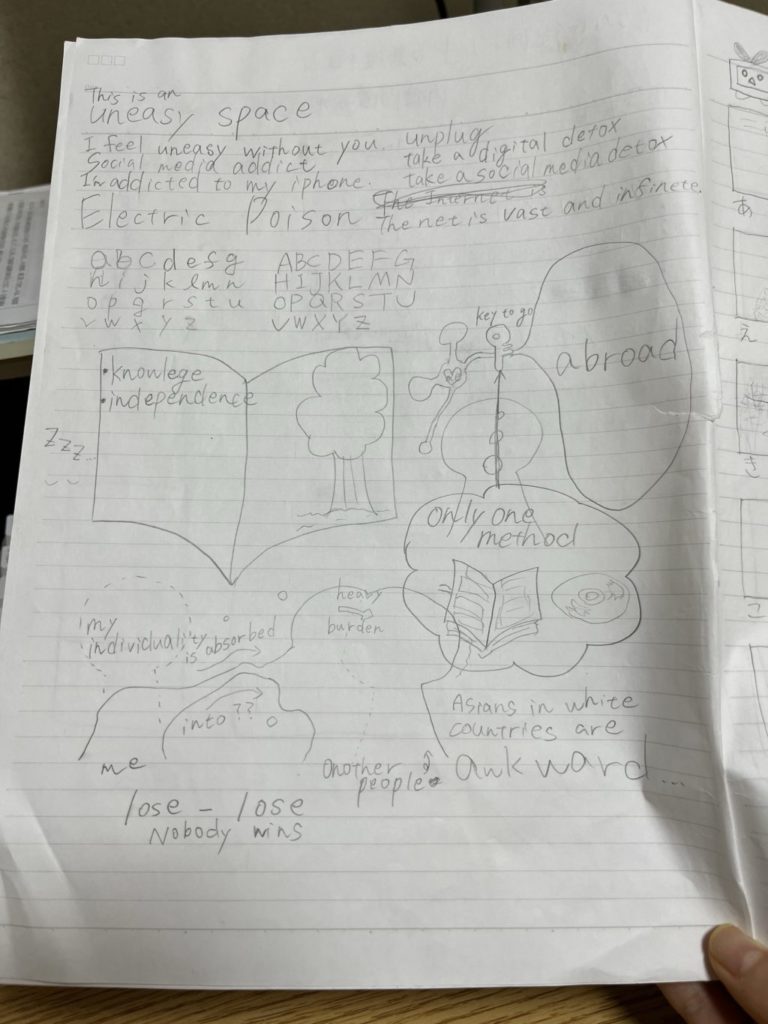 This is an
uneasy space
I feel uneasy without you.
Social media addict
I'm addicted to my iphone.
unplug
take a digital detox
take a social media detox
The Internet is
The net is vast and infinete.
Electric Poison
a b c d e f g
h i j k l m n
o p q r s t u
v w x y z
A B C D E F G
H I J K L M N
O P Q R S T U
V W X Y Z
・knowlege
・independence
Zzz...
key to go
abroad
only one
method
my
individuality
is absorbed
into ??
me
heavy
burden
another
people
Asians in white
countries are
awkward...
lose - lose
Nobody wins
あ
え
さ
こ